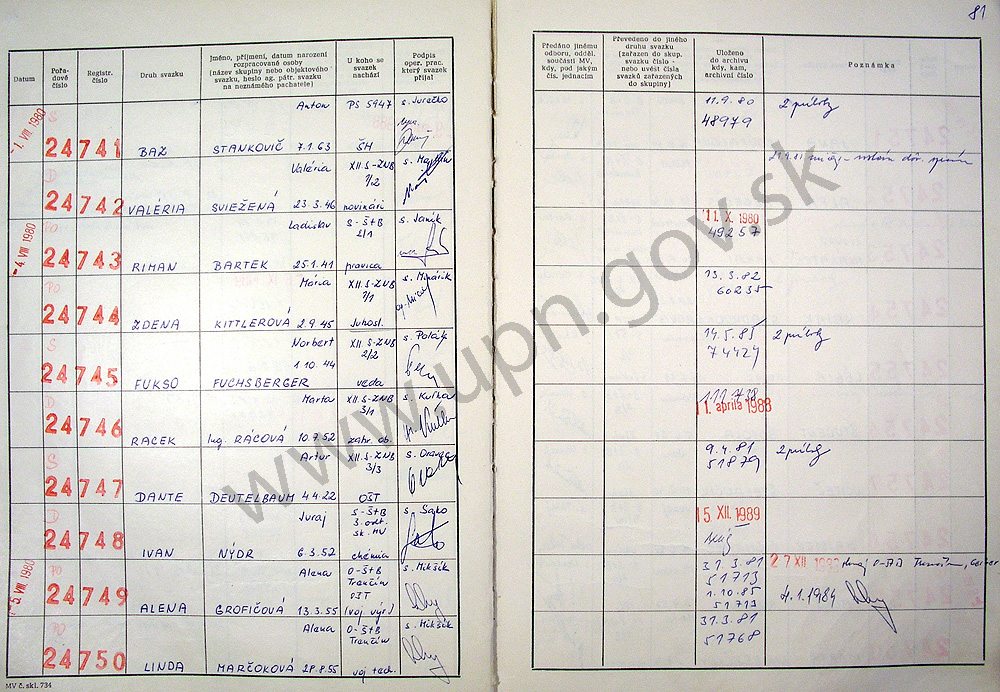 81
Datum
Pořa-
dové
číslo
Registr.
číslo
Druh svazku
Jméno, příjmení, datum narození
rozpracované osoby
(název skupiny nebo objektového
svazku, heslo ag. pátr. svazku
na neznámého pachatele)
U koho se
svazek
nachází
Podpis
oper. prac.
který svazek
přijal
Předáno jinému
odboru, odděl.
součásti MV,
kdy, pod jakým
čís. jednacím
Převedeno do jiného
druhu svazku
(zařazen do skup.
svazku číslo -
nebo uvést čísla
svazků zařazených
do skupiny)
Uloženo
do archivu
kdy, kam,
archivní číslo
Poznámka
-1. VIII 1980
S
24741
BAŽ
Anton
STANKOVIČ 7.1.63
PS 5947
ŠH
s. Jurečko
11.9.80
48979
2 prílohy
D
24742
VALÉRIA
Valéria
SVIEŽENÁ 23.3.46
XII.S-ZNB
7/2
novinári
-4. VIII 1980
PO
24743
RIMAN
Ladislav
BARTEK 25.1.41
S-ŠtB
2/1
pravica
s. Janík
11. X. 1980
49257
PO
24744
ZDENA
Mária
KITTLEROVÁ 2.9.45
XII.S-ZNB
7/1
Juhosl.
s. Minárik
13.3.82
60235
S
24745
FUKSO
Norbert
1.10.44
FUCHSBERGER
XII.S-ZNB
2/2
veda
14.5.85
74424
2 prílohy
D
24746
RACEK
Marta
Ing. RÁCOVÁ 10.7.52
XII.S-ZNB
3/1
zahr. ob.
s. Kuřka
11. apríla 1988
S
24747
DANTE
Artur
DEUTELBAUM 4.4.22
XII.S-ZNB
3/3
OŠT
9.4.81
51879
2 prílohy
D
24748
IVAN
Juraj
NÝDR 6.3.52
S-ŠtB
3.odt.
sk. MV
chémia
s. Sajko
15. XII. 1989
-5. VIII 1980
PO
24749
ALENA
Alena
GROFIČOVÁ 13.3.55
O-ŠtB
Trenčín
OST
(voj. výr.)
s. Mikšík
31.3.81
51713
1.10.85
51713
4.1.1984
PO
24750
LINDA
Alena
MARČOKOVÁ 28.8.55
O-ŠtB
Trenčín
voj. tech.
s. Mikšík
31.3.81
51768
MV č. skl. 734
www.upn.gov.sk